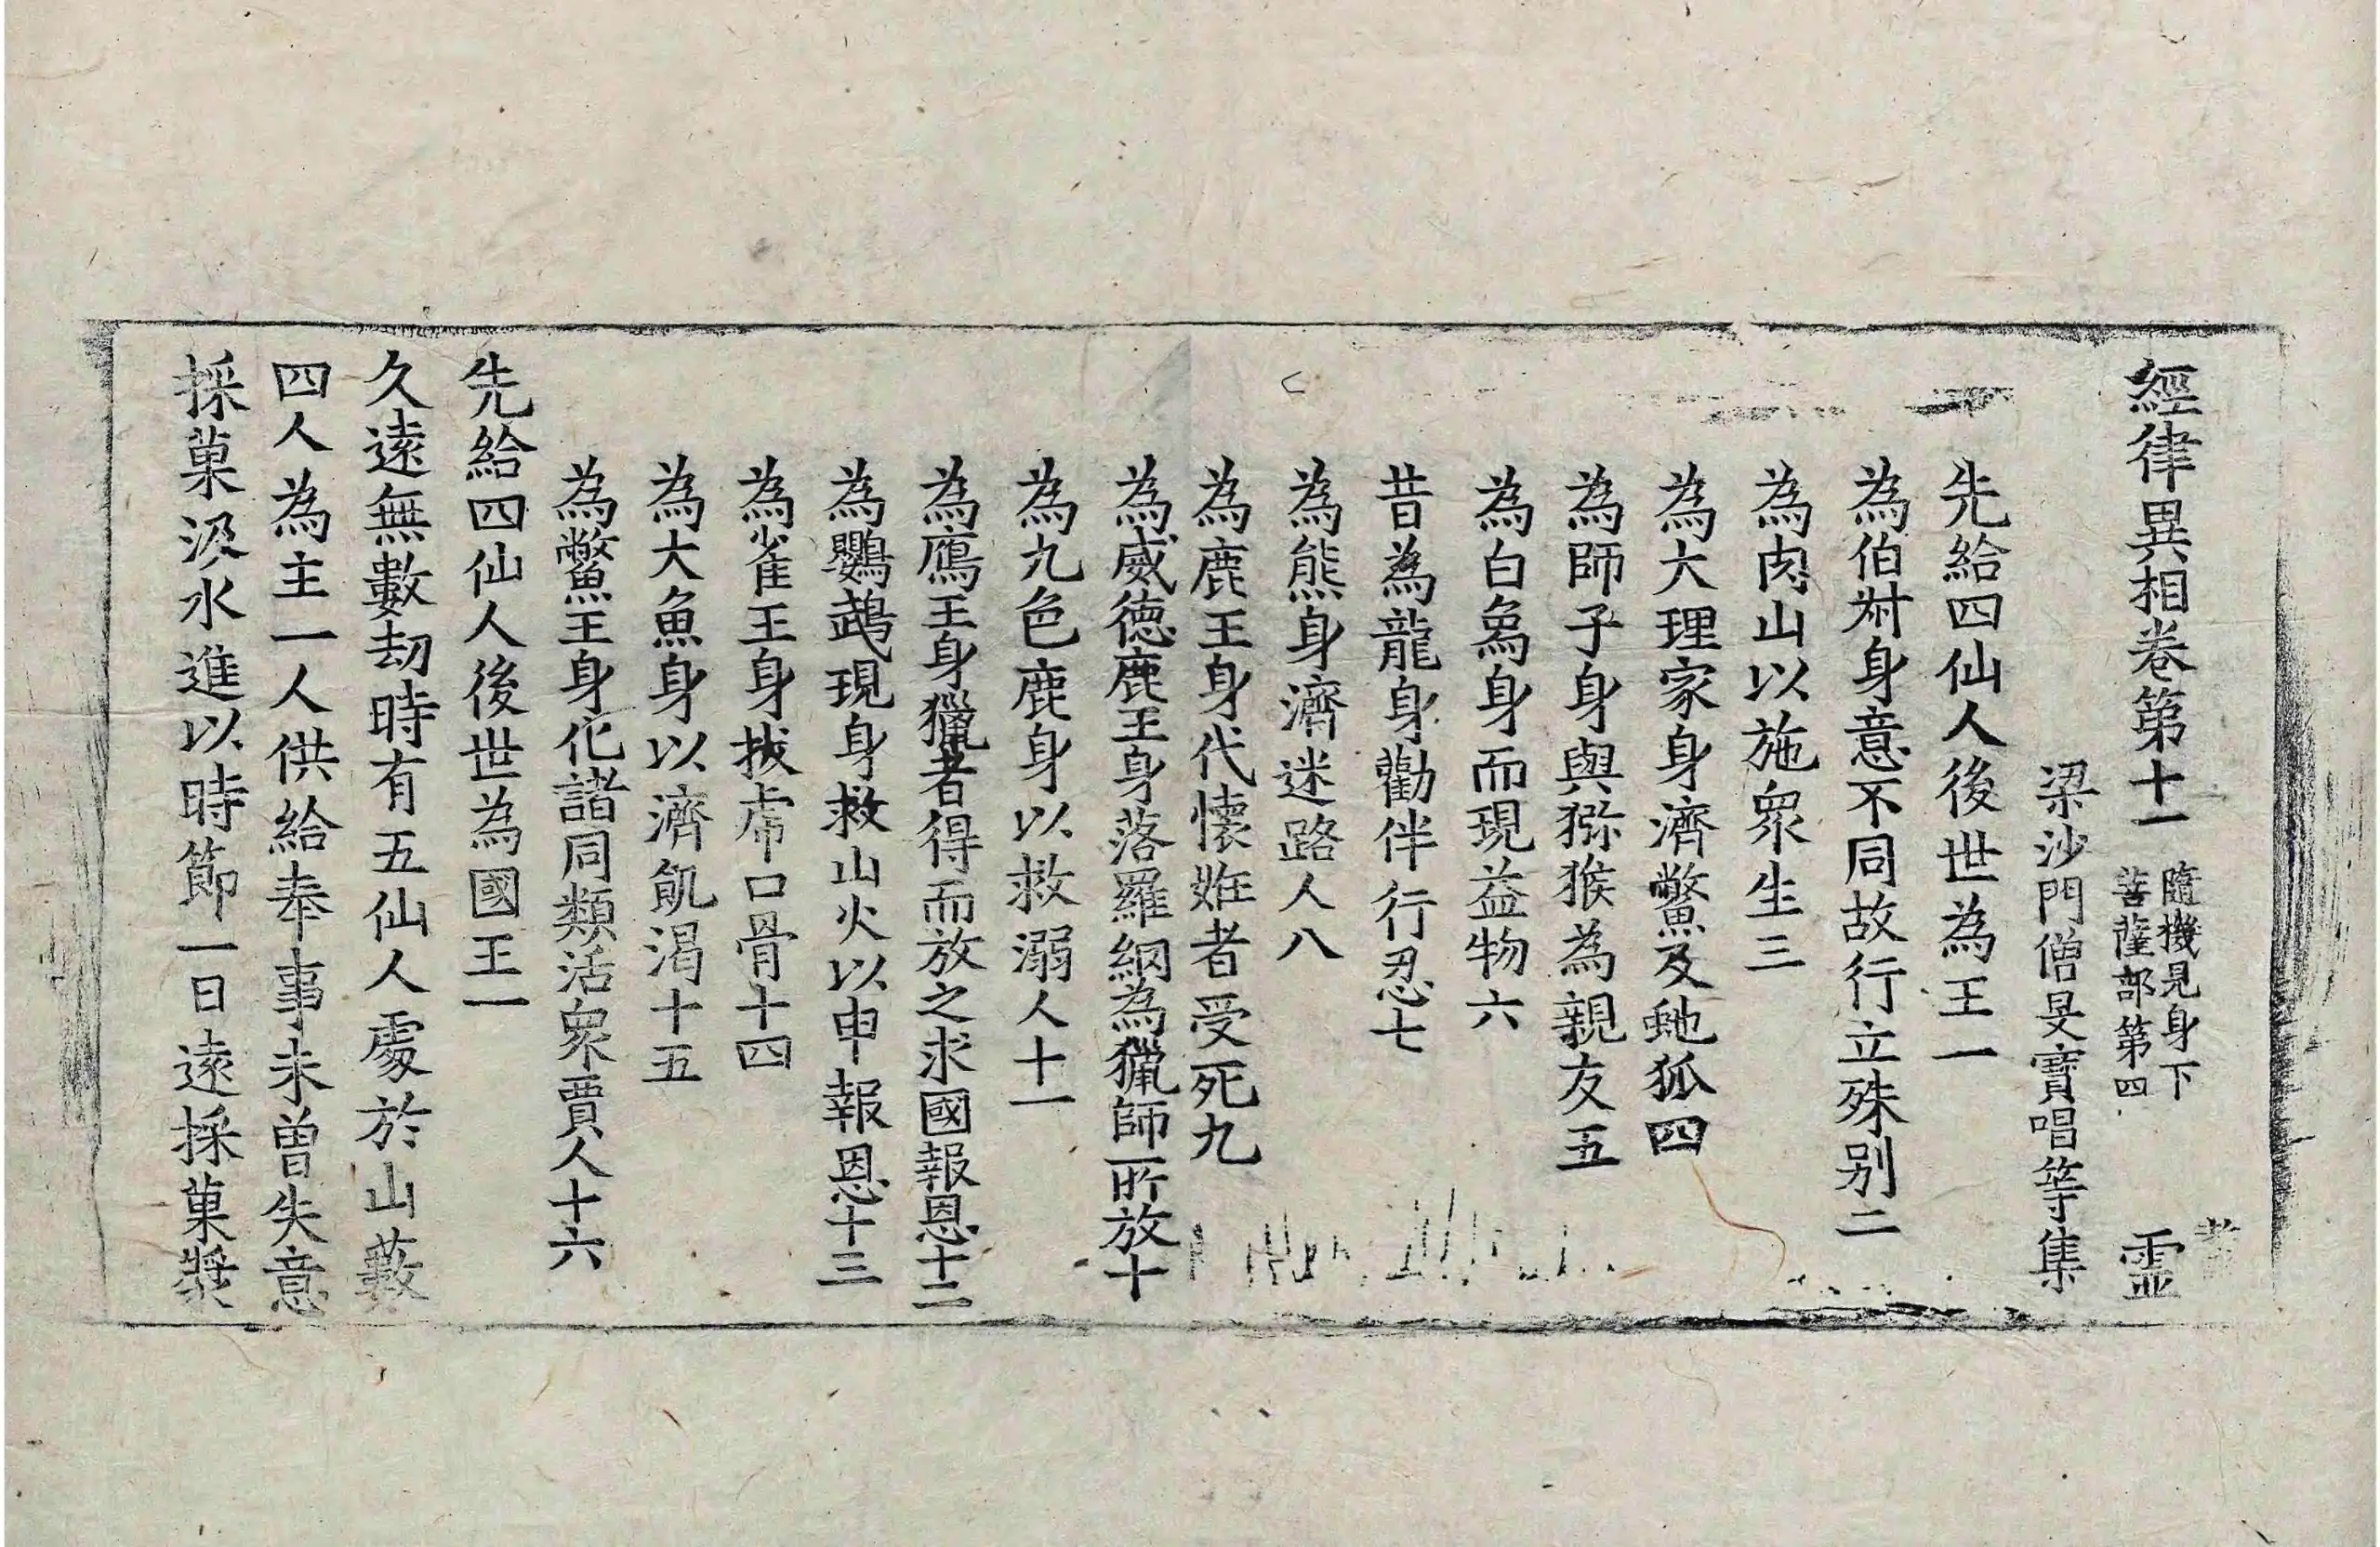 經律異相卷第十一 隨機見身下 菩薩部第四 靈
梁沙門僧旻寶唱等集
先給四仙人後世為王一
為伯叔身意不同故行立殊别二
為肉山以施眾生三
為大理家身濟鱉及虵狐四
為師子身與獼猴為親友五
為白象身而現益物六
昔為龍身勸伴行忍七
為熊身濟迷路人八
為鹿王身代懷妊者受死九
為威德鹿王身落羅網為獵師所放十
為九色鹿身以救溺人十一
為鴈王身獵者得而放之求國報恩十二
為鸚鵡現身救山火以申報恩十三
為雀王身拔虎口骨十四
為大魚身以濟飢渴十五
為鱉王身化諸同類活眾賈人十六
先給四仙人後世為國王一
久遠無數劫時有五仙人處於山藪
四人為主一人供給奉事未曾失意
採菓汲水進以時節一日遠採菓漿